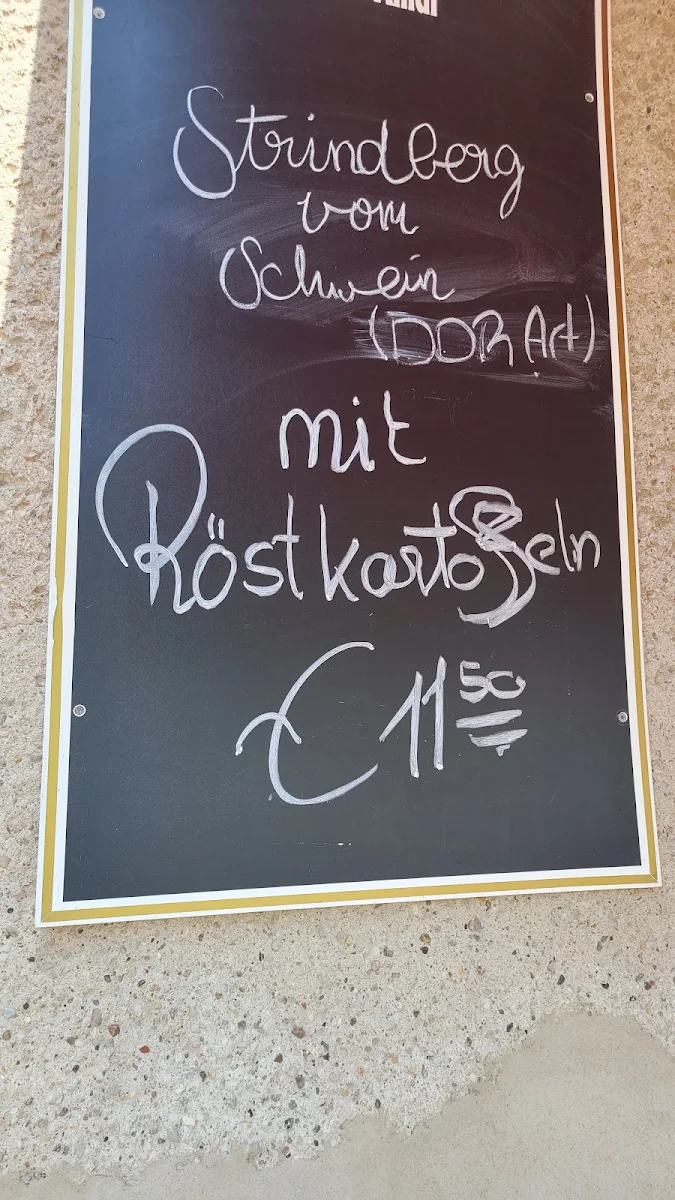 Strindberg
vom
Schwein
(DDR Art)
mit
Röstkartoffeln
€ 11 50